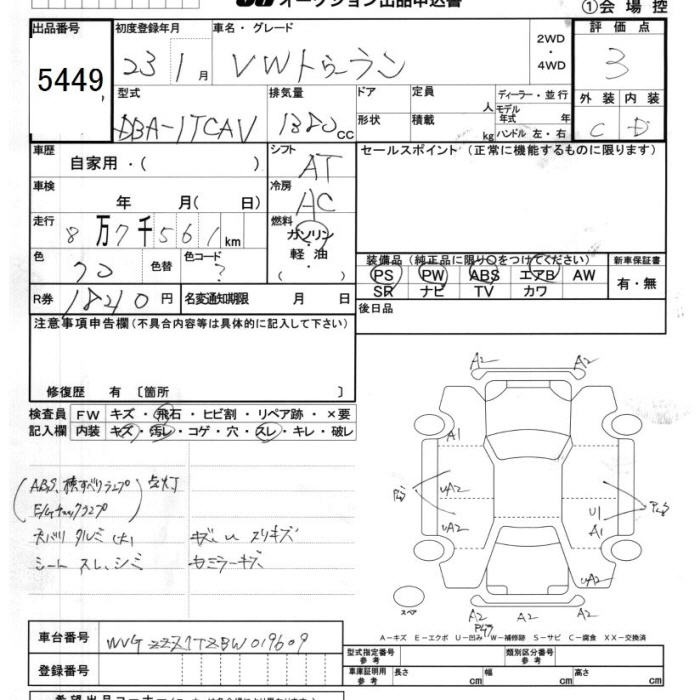 オークション出品申込書
①会場控
出品番号
5449
初度登録年月
23 1月
車名・グレード
VWトゥーラン
2WD
・
4WD
評価点
3
外装 内装
C D
型式
DBA-1TCAV
排気量
CC
ドア
形状
定員
人
積載
kg
ディーラー・並行
モデル年式 年
ハンドル 左・右
車歴
自家用・( )
シフト
AT
セールスポイント (正常に機能するものに限ります)
車検
年 月( 日)
冷房
AC
走行
8万7千561km
燃料
ガソリン
・
軽油
・( )
色
クロ
色替
色コード
?
装備品 (純正品に限り○をつけてください)
PS PW ABS エアB AW
SR ナビ TV カワ
新車保証書
有・無
R券
18210円
名変通知期限 月 日
後日品
注意事項申告欄(不具合内容等は具体的に記入して下さい)
修復歴 有 〔箇所 〕
検査員
記入欄
FW キズ・飛石・ヒビ割・リペア跡・×要
内装 キズ・汚レ・コゲ・穴・スレ・キレ・破レ
ABS、横すべりランプ 点灯
E/Gチェックランプ
天バリ タルミ(大)
シート スレ、シミ
キズ U スリキズ
セミラーキズ
A2 A2
A1
UA2
UA2
U1
A1
UA2
A2 A2 A2
スペア
A-キズ E-エクボ U-凹み W-補修跡 S-サビ C-腐食 XX-交換済
車台番号
WVGZZZ1TZBW019609
登録番号
型式指定番号
参考
類別区分番号
参考
車庫証明用
参考
長さ cm
幅 cm
高さ cm